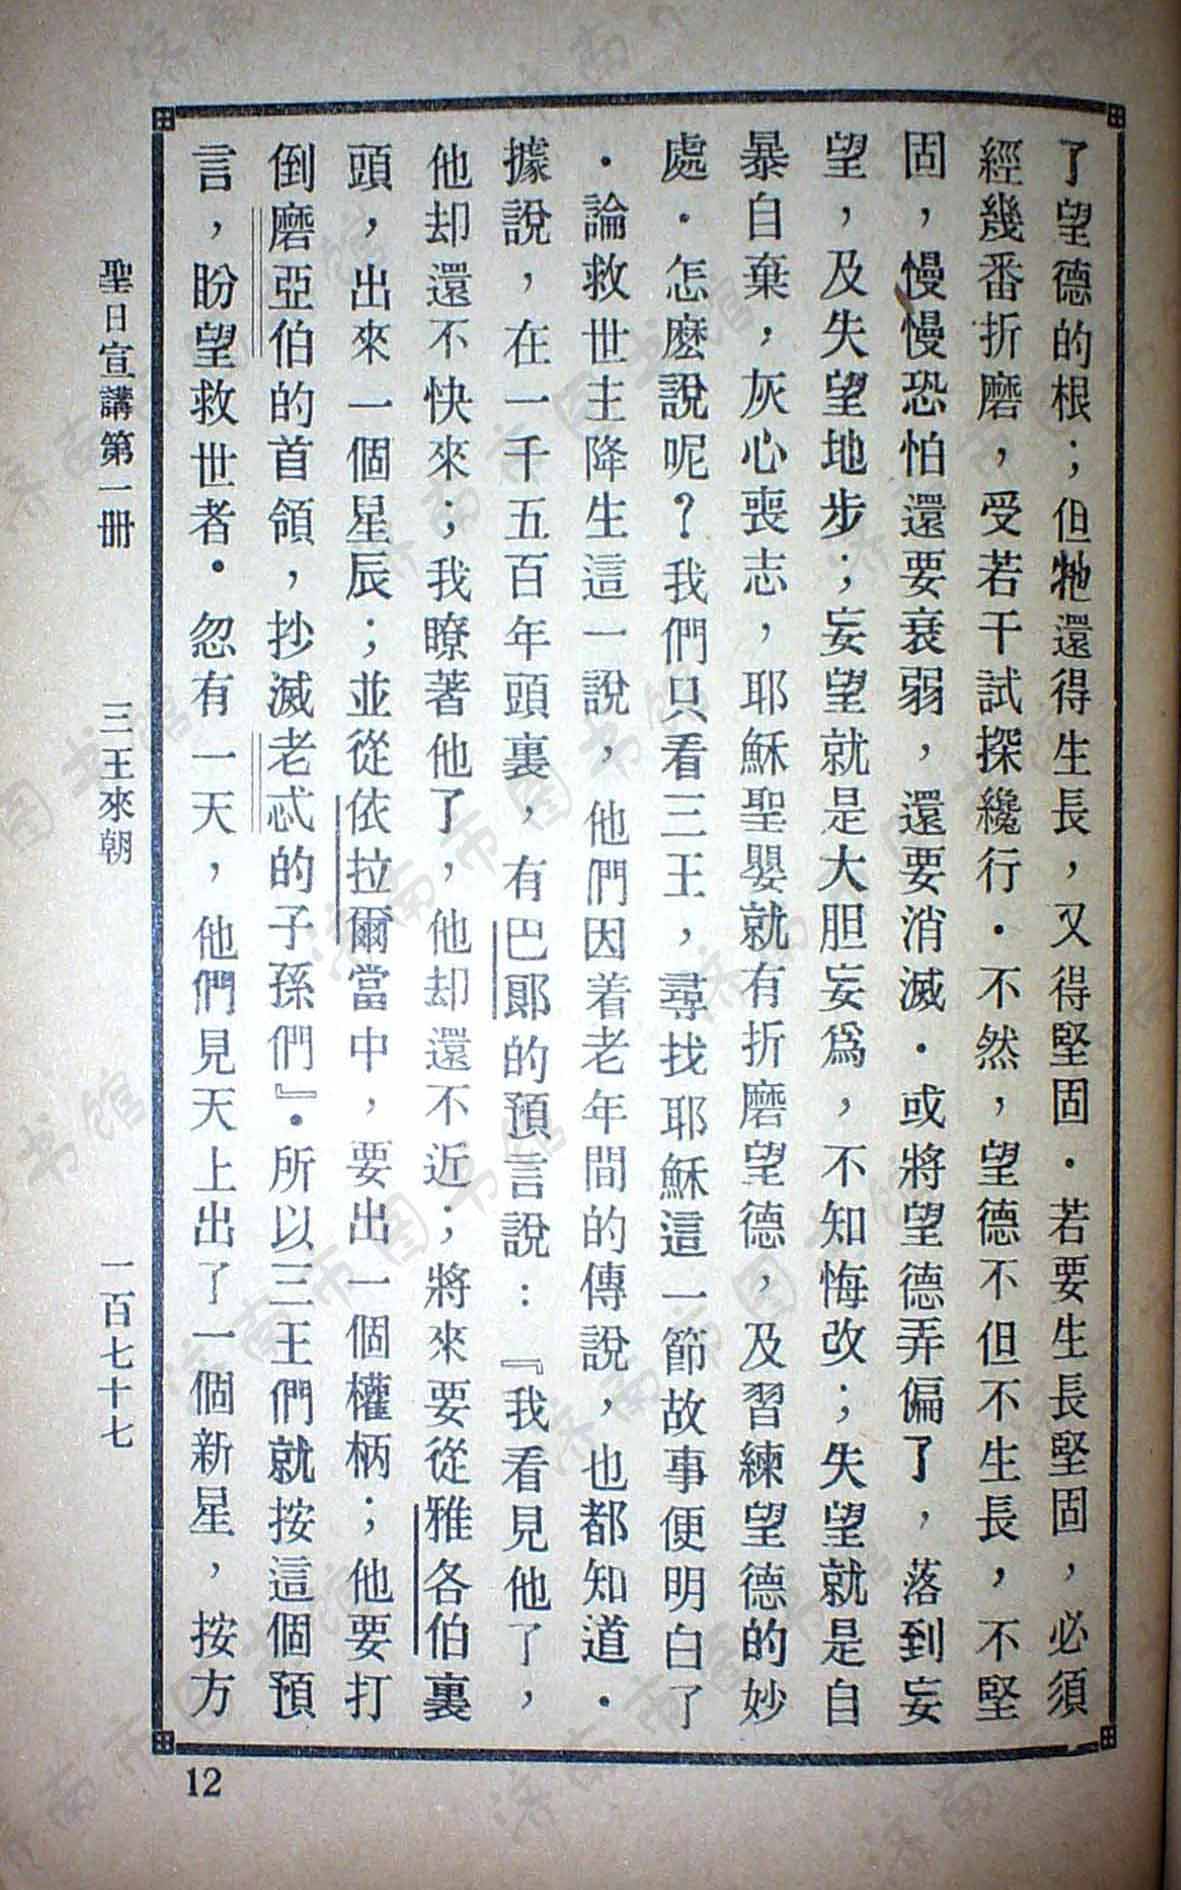 了望德的根；但牠還得生長，又得堅固．若要生長堅固，必須
經幾番折磨，受若干試探纔行．不然，望德不但不生長，不堅
固，慢慢恐怕還要衰弱，還要消滅．或將望德弄偏了，落到妄
望，及失望地步；妄望就是大胆妄爲，不知悔改；失望就是自
暴自棄，灰心喪志，耶穌聖嬰就有折磨望德，及習練望德的妙
處．怎麽說呢？我們只看三王，尋找耶穌這一節故事便明白了
．論救世主降生這一說，他們因着老年間的傳說，也都知道．
據說，在一千五百年頭裏，有巴郎的預言說：『我看見他了，
他却還不快來；我瞭著他了，他却還不近；將來要從雅各伯裏
頭，出來一個星辰；並從依拉爾當中，要出一個權柄；他要打
倒磨亞伯的首領，抄滅老忒的子孫們』．所以三王們就按這個預
言，盼望救世者．忽有一天，他們見天上出了一個新星，按方
聖日宣講第一册 三王來朝 一百七十七
12
济南市图书馆